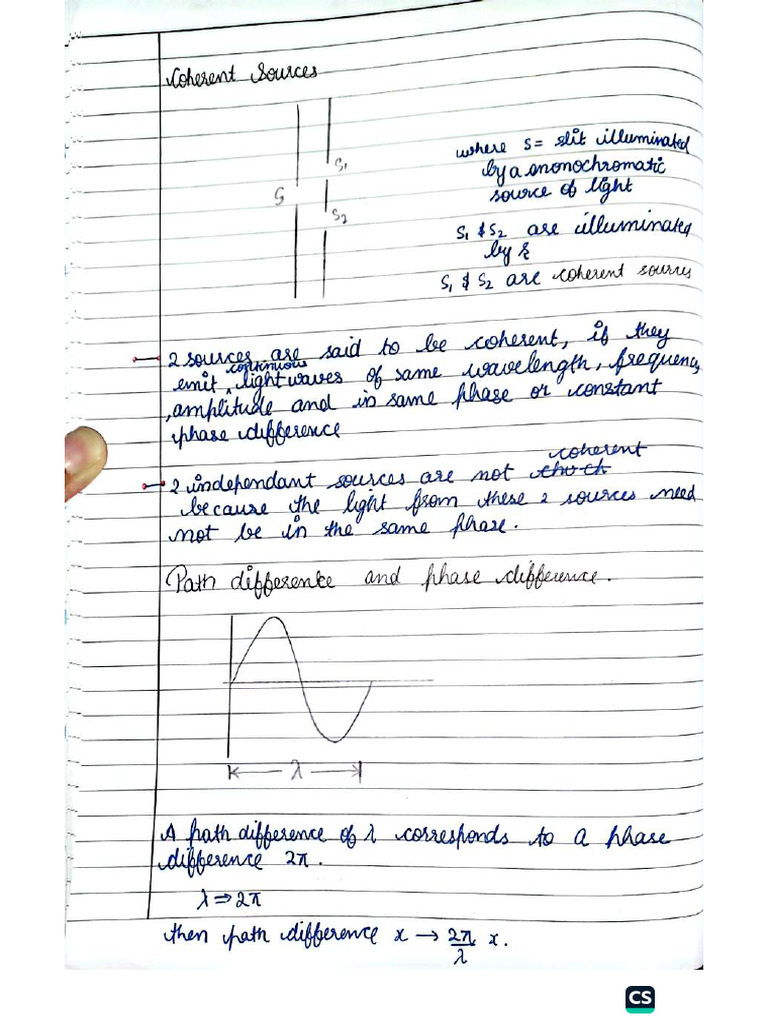 Coherent Sources
S₁
S
S₂
where S = slit illuminated
by a monochromatic
source of light
S₁ & S₂ are illuminated
by &
S₁ & S₂ are coherent sources
2 sources are said to be coherent, if they
continuous
emit, light waves of same wavelength, frequency
, amplitude and in same phase or constant
phase difference
coherent
2 independant sources are not
because the light from these 2 sources need
not be in the same phase.
Path difference and phase difference.
λ
A path difference of λ corresponds to a phase
difference 2π.
λ ⇒ 2π
then path difference x → 2π/λ x.
CS